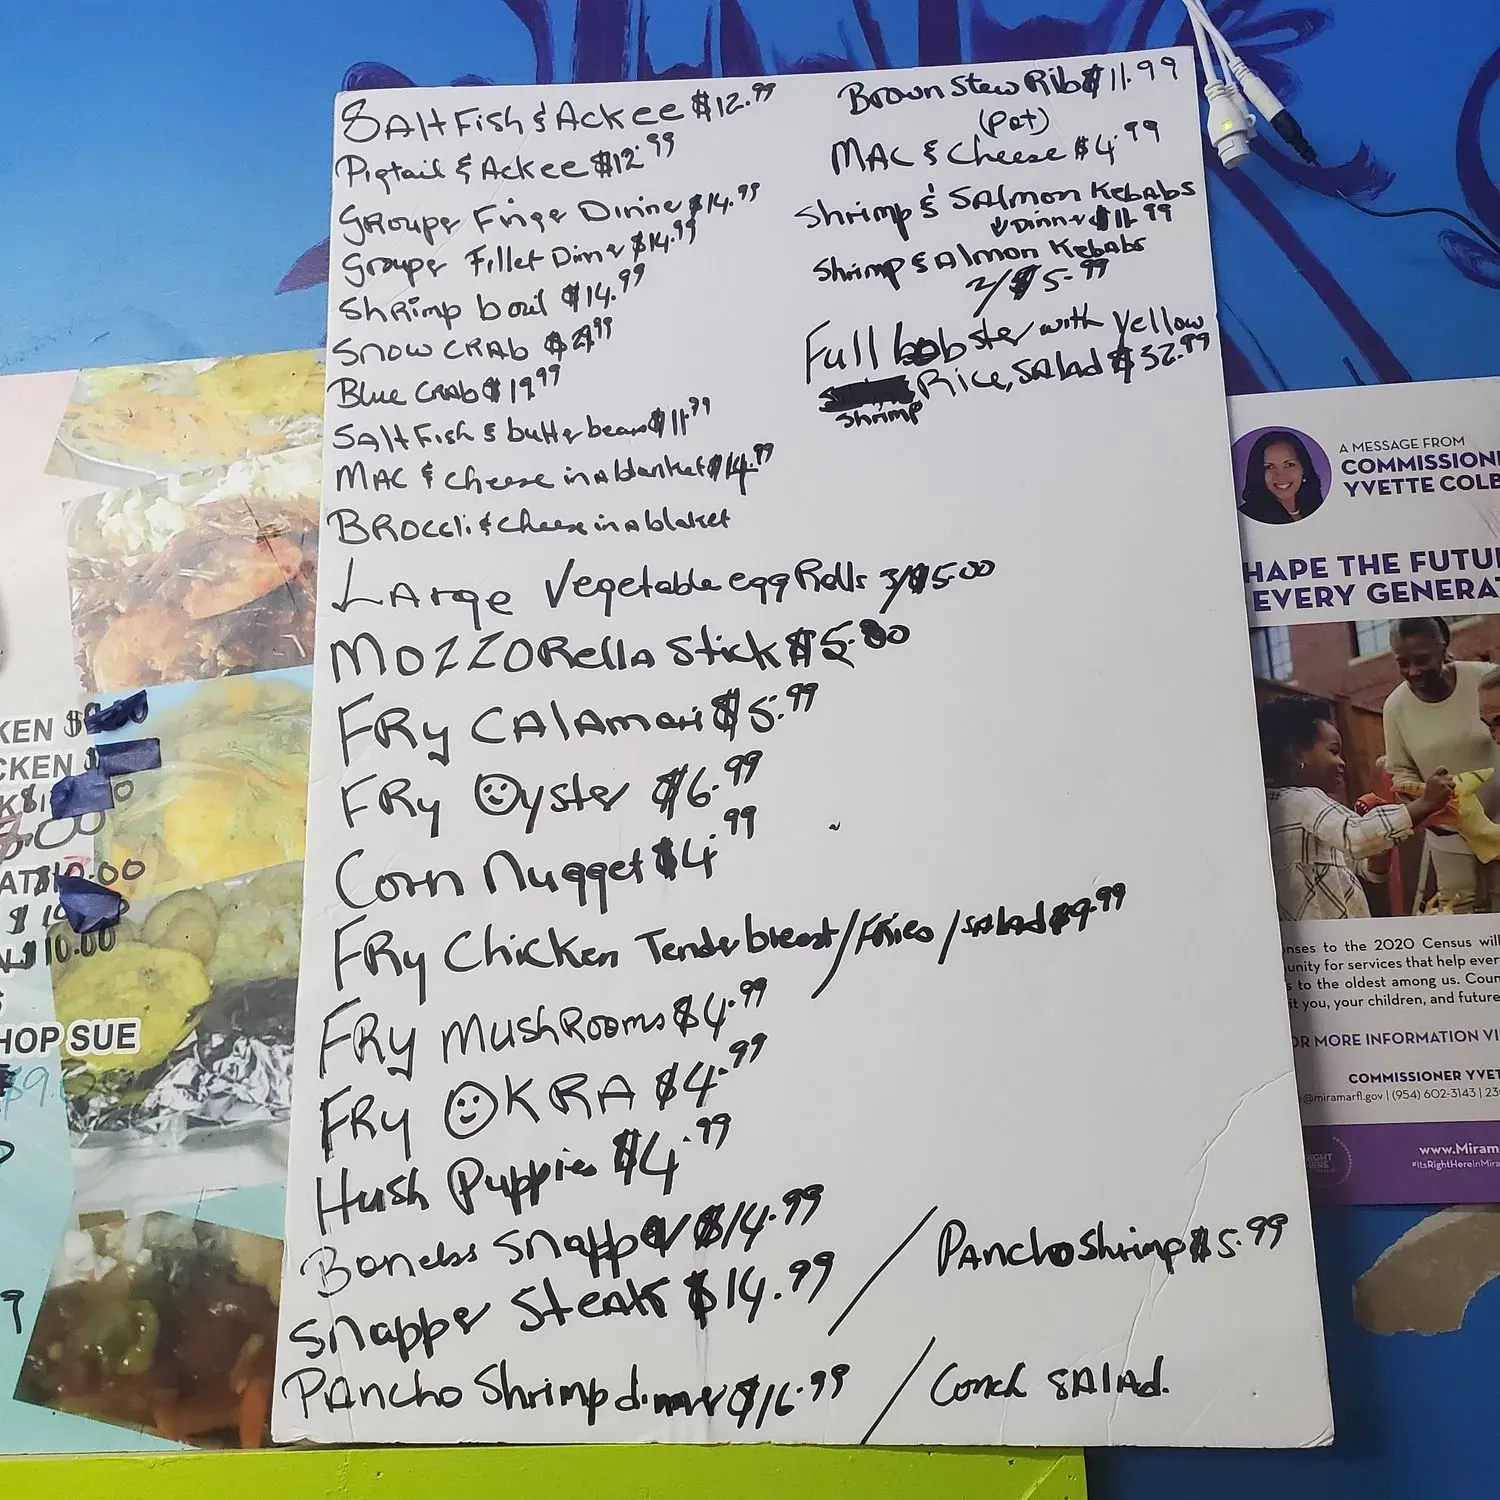 SAlt Fish & Ackee $12.99
Pigtail & Ackee $12.99
Grouper Finger Dinner $14.99
Grouper Fillet Dinner $14.99
Shrimp boil $14.99
SNOW CRAB
Blue CRAb $19.99
SAlt Fish & butter beans $11.99
MAC & cheese in a blanket $14.99
BROccli & cheese in a blaket
LArge Vegetable egg Rolls 3/$5.00
MOZZORella Stick
FRy CAlAmari $5.99
FRy Oyster $6.99
Corn Nugget $4.99
FRy Chicken Tender breast/Fries/salad $9.99
FRy MushRooms $4.99
FRy OKRA $4.99
Hush Puppies $4.99
Boneless Snapper $14.99
Snapper Steak $14.99 /
PAncho Shrimp dinner $16.99 /
PAncho Shrimp $5.99
Conch SAlAd.
Brown Stew Rib $11.99
MAC & Cheese $4.99
Shrimp & SAlmon Kebabs
Dinner $11.99
Shrimp & SAlmon Kebabs
2/$5.99
Full lobster with Yellow
Rice, SAlad $32.99
Shrimp
KEN $
CKEN $
$10.00
$10.00
HOP SUE
$9.
A MESSAGE FROM
COMMISSION
YVETTE COLB
HAPE THE FUTU
EVERY GENERA
nses to the 2020 Census will
unity for services that help ever
s to the oldest among us. Coun
it you, your children, and future
OR MORE INFORMATION VI
COMMISSIONER YVET
@miramarfl.gov | (954) 602-3143 | 23
www.Miram
#ItsRightHereInMira